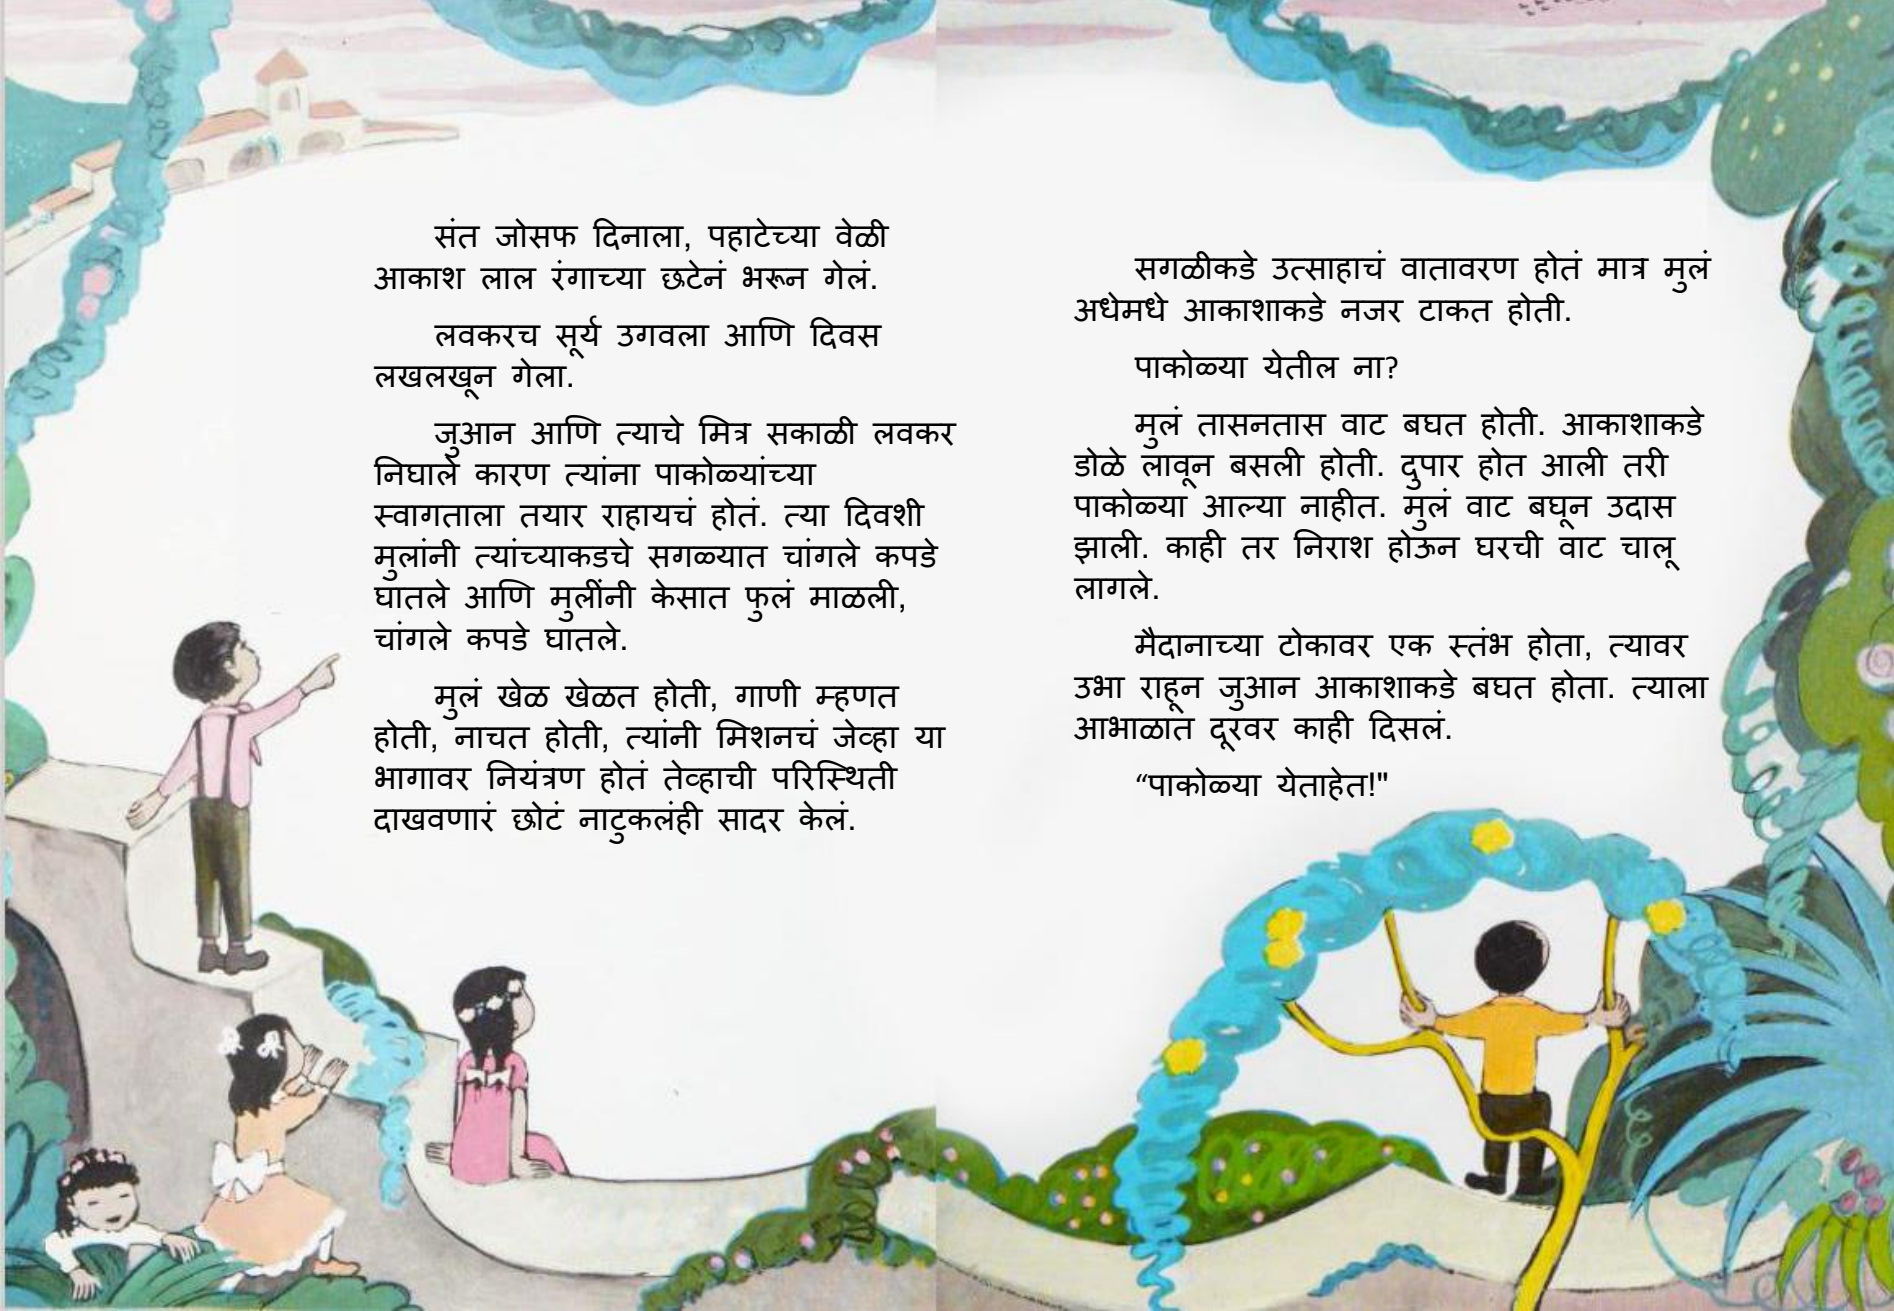 संत जोसफ दिनाला, पहाटेच्या वेळी
आकाश लाल रंगाच्या छटेनं भरून गेलं.
लवकरच सूर्य उगवला आणि दिवस
लखलखून गेला.
जुआन आणि त्याचे मित्र सकाळी लवकर
निघाले कारण त्यांना पाकोळ्यांच्या
स्वागताला तयार राहायचं होतं. त्या दिवशी
मुलांनी त्यांच्याकडचे सगळ्यात चांगले कपडे
घातले आणि मुलींनी केसात फुलं माळली,
चांगले कपडे घातले.
मुलं खेळ खेळत होती, गाणी म्हणत
होती, नाचत होती, त्यांनी मिशनचं जेव्हा या
भागावर नियंत्रण होतं तेव्हाची परिस्थिती
दाखवणारं छोटं नाटुकलंही सादर केलं.
सगळीकडे उत्साहाचं वातावरण होतं मात्र मुलं
अधेमधे आकाशाकडे नजर टाकत होती.
पाकोळ्या येतील ना?
मुलं तासनतास वाट बघत होती. आकाशाकडे
डोळे लावून बसली होती. दुपार होत आली तरी
पाकोळ्या आल्या नाहीत. मुलं वाट बघून उदास
झाली. काही तर निराश होऊन घरची वाट चालू
लागले.
मैदानाच्या टोकावर एक स्तंभ होता, त्यावर
उभा राहून जुआन आकाशाकडे बघत होता. त्याला
आभाळात दूरवर काही दिसलं.
“पाकोळ्या येताहेत!"